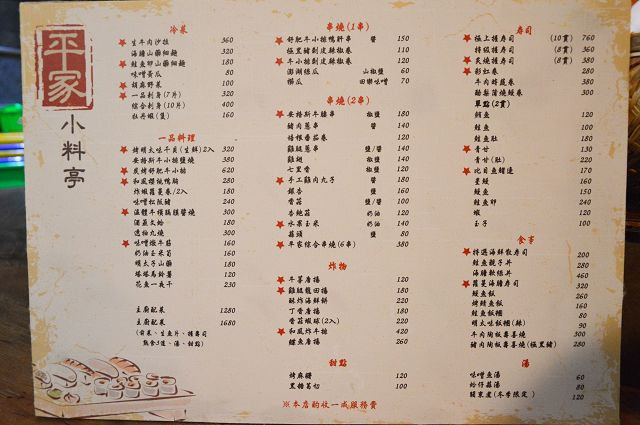 平家
小料亭
冷菜
生牛肉沙拉 360
海膽山藥細麵 320
鮭魚卵山藥細麵 180
味噌黃瓜 80
胡麻野菜 100
一品刺身(7片) 320
綜合刺身(10片) 400
牡丹蝦(隻) 160
一品料理
烤明太味干貝(生鮮)2入 320
安格斯牛小排鹽燒 380
炭烤舒肥牛小排 360
和風櫻桃鴨胸 280
炸蝦蘿蔓卷/2入 180
味噌松阪豬 240
溫體牛橫膈膜醬燒 300
酒蒸文蛤 180
透抽丸燒 300
味噌燉牛筋 160
奶油玉米筍 160
明太子山藥 180
塔塔馬鈴薯 120
花魚一夜干 230
主廚配菜 1280
主廚配菜 1680
(前菜、生魚片、握壽司
熟食3道、湯、甜點)
串燒(1串)
舒肥牛小排鴨肝串 醬 150
極黑豬剝皮辣椒卷 110
牛小排剝皮辣椒卷 120
澎湖絲瓜 山椒鹽 60
櫛瓜 田樂味噌 70
串燒(2串)
安格斯牛臀串 椒鹽 180
豬肉蔥串 醬 140
培根番茄卷 120
雞腿蔥串 鹽/醬 140
雞翅 椒鹽 120
七里香 椒鹽 120
手工雞肉丸子 鹽/醬 180
銀杏 鹽 160
香菇 鹽/醬 120
杏鮑菇 奶油 120
水果玉米 奶油 140
蒜頭 鹽 80
平家綜合串燒(6串) 380
炸物
牛蒡唐揚 120
雞腿龍田揚 180
酥炸海鮮餅 220
丁香唐揚 180
香菇蝦球(2入) 220
和風炸牛排 420
鱷魚唐揚 280
甜點
烤麻糬 120
黑糖葛切 100
※本店酌收一成服務費
壽司
極上握壽司 (10貫) 760
特級握壽司 (8貫) 360
炙燒握壽司 (8貫) 380
彩虹卷 280
牛肉時蔬卷 380
酪梨蒲燒鰻卷 300
單點(2貫)
鮪魚 120
鮭魚 100
鮭魚肚 120
青甘 130
青甘(肚) 220
比目魚鰭邊 170
星鰻 160
鰻魚 150
鮭魚卵 240
蝦 120
玉子 100
食事
特選海鮮散壽司 200
鮭魚親子丼 280
海膽軟絲丼 460
蘿蔓海膽壽司 320
鰻魚飯 260
烤鯖魚飯 160
鮭魚飯糰 80
明太味飯糰(辣) 90
牛肉陶板壽喜燒 300
豬肉陶板壽喜燒(極黑豬) 280
湯
味噌魚湯 60
蛤仔蒜湯 80
關東煮(冬季限定) 120